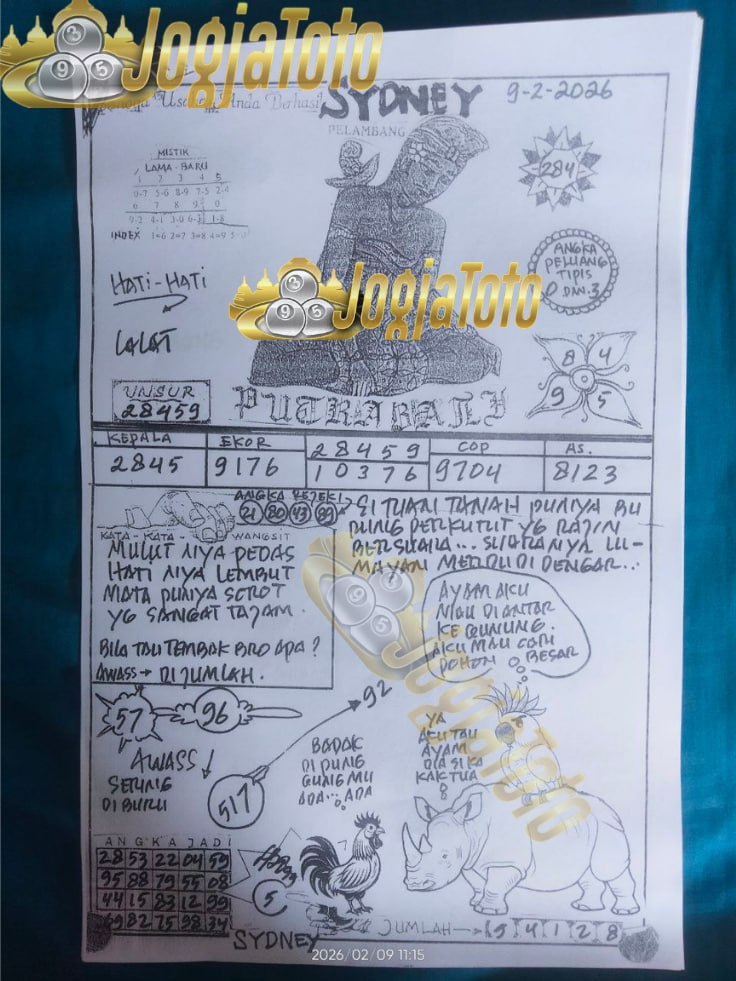 JogjaToto
3 9 5
Usaha Anda Berhasil
SYDNEY
9-2-2026
PELAMBANG
MISTIK
LAMA-BARU
1 2 3 4 5
0-7 5-6 8-9 7-5 2-4
6 7 8 9 0
9-2 4-1 3-0 6-3 1-8
INDEX 1=6 2=7 3=8 4=9 5=0
284
ANGKA
PELUANG
TIPIS
0 DAN.3
HATI-HATI
LALAT
JogjaToto
3 9 5
8 4
9 5
UNSUR
28459
PUTRA BALI
KEPALA
EKOR
28459
COP
AS.
2845
9176
10376
9704
8123
ANGKA REJEKI
21 80 43 89
KATA - KATA WANGSIT
MULUT NIYA PEDAS
HATI NIYA LEMBUT
MATA PUNIYA SOROT
YG SANGAT TAJAM.
BILA TAU TEMBAK BRO APA?
AWASS → DIJUMLAH.
SI TUAN TANAH PUNIYA BU
RUNG PERKUTUT YG RAJIN
BERSUARA... SUARANYA LU-
MAYAN MERDU DI DENGAR...
AYAM AKU
MAU DI ANTAR
KE GUNUNG.
AKU MAU CARI
POHON BESAR
JogjaToto
57 96
92
AWASS
SERING
DI BURU
517
BADAK
DI PUNG
GUNG MU
ADA... ADA
YA
AKU TAU
AYAM
DIA SIKA
KAKTUA
JogjaToto
ANGKA JADI
28 53 22 04 59
95 88 79 55 08
44 15 83 12 99
69 82 75 98 34
5
JUMLAH → 5 4 1 2 8
SYDNEY
2026/02/09 11:15